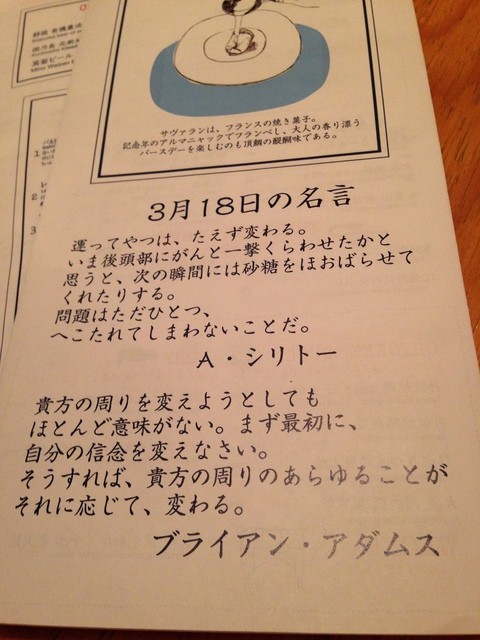 静岡 有機農法
箕面ビール
サヴァランは、フランスの焼き菓子。
記念年のアルマニャックでフランベし、大人の香り漂う
バースデーを楽しむのも頂餬の醍醐味である。
3月18日の名言
運ってやつは、たえず変わる。
いま後頭部にがんと一撃くらわせたかと
思うと、次の瞬間には砂糖をほおばらせて
くれたりする。
問題はただひとつ、
へこたれてしまわないことだ。
A・シリトー
貴方の周りを変えようとしても
ほとんど意味がない。まず最初に、
自分の信念を変えなさい。
そうすれば、貴方の周りのあらゆることが
それに応じて、変わる。
ブライアン・アダムス
1.
2.
3.